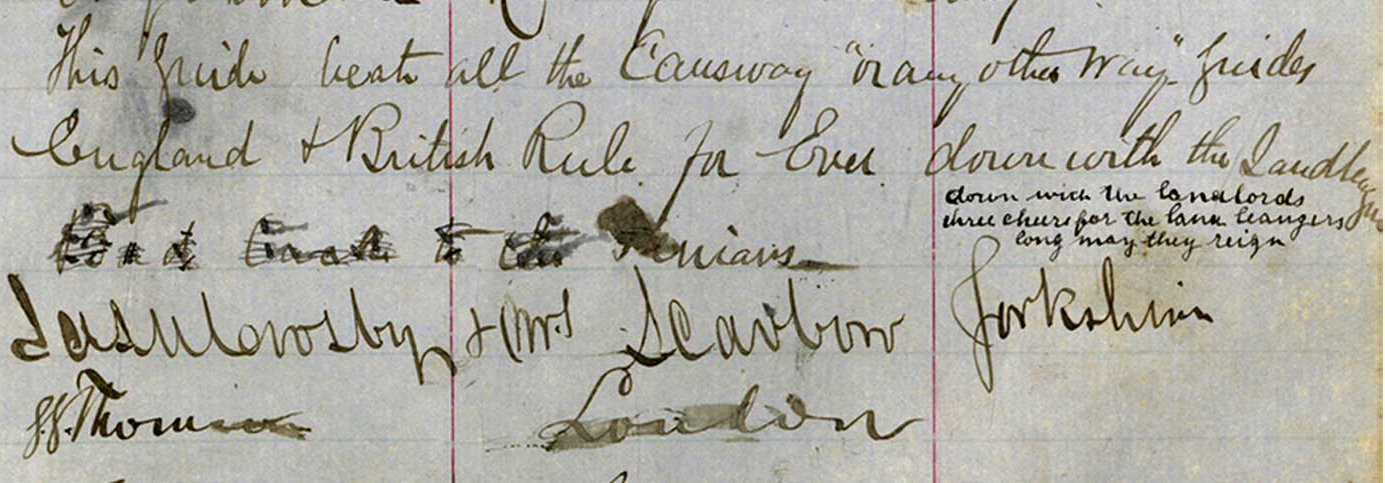 This Guide beats all the Causway "or any other Way" Guides
England & British Rule for Ever down with the Landleaguers
down with the landlords
three cheers for the land leaugers
long may they reign
to the Fenians
& Mrs Scarboro Yorkshire
Thomson London